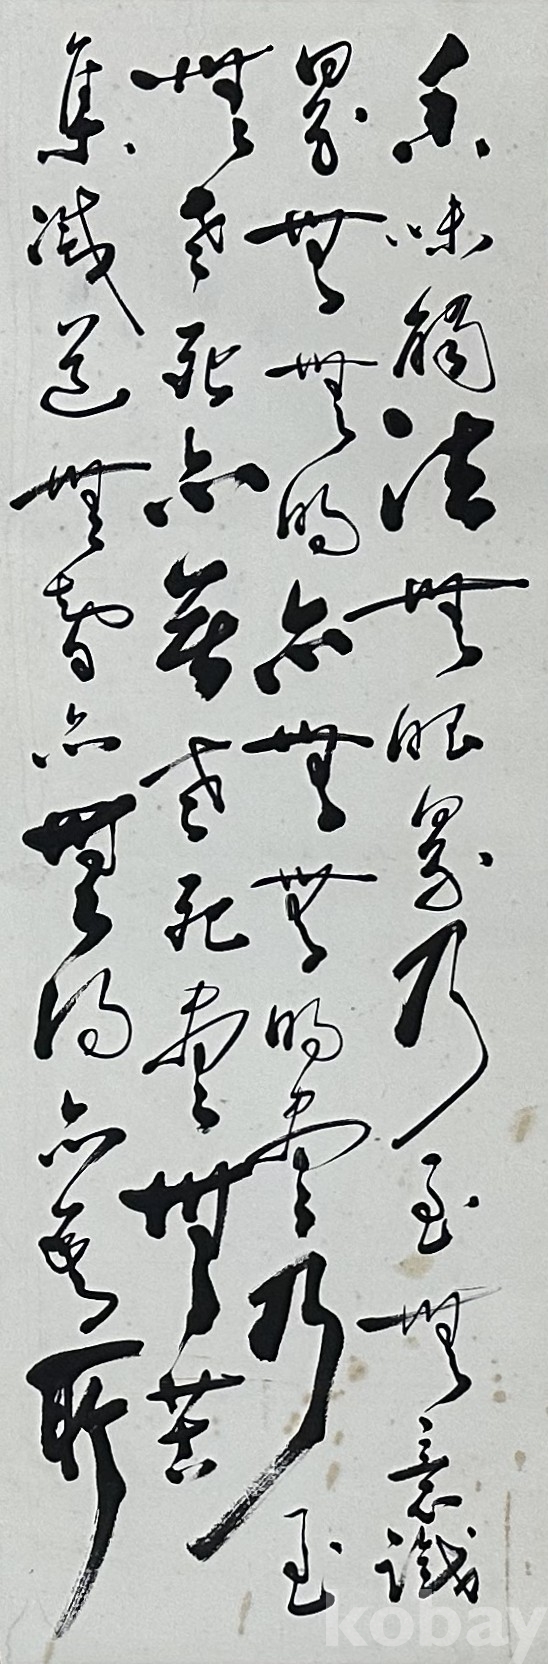 香味觸法無眼界乃至無意識
界無無明亦無無明盡乃至
無老死亦無老死盡無苦
集滅道無智亦無得以無所
kobay